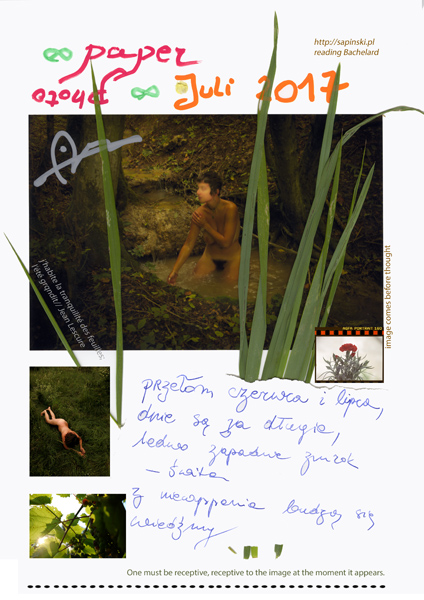 paper
photo
Juli 2017
http://sapinski.pl
reading Bachelard
j'habite la tranquilité des feuilles,
l'été grandit// Jean Lescure
image comes before thought
AGFA PORTRAIT 160
przełom czerwca i lipca,
dnie są za długie,
ledwo zapadnie zmrok
– świta
z niewyspania budzą się
One must be receptive, receptive to the image at the moment it appears.